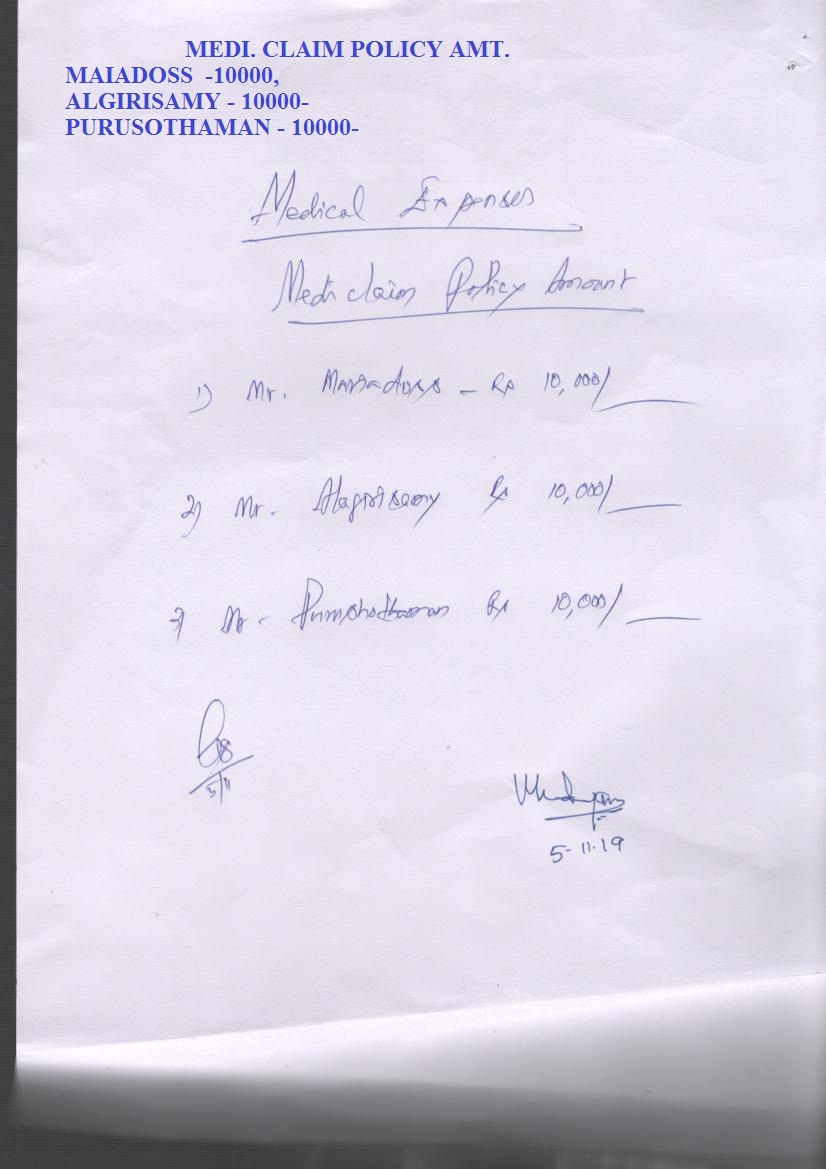 MEDI. CLAIM POLICY AMT.
MAIADOSS -10000,
ALGIRISAMY - 10000-
PURUSOTHAMAN - 10000-
Medical Expenses
Mediclaim Policy Amount
1) Mr. Mariadoss - Rs 10,000/
2) Mr. Alagirisamy Rs 10,000/
3) Mr. Purushothaman Rs 10,000/
5/11
5-11-19